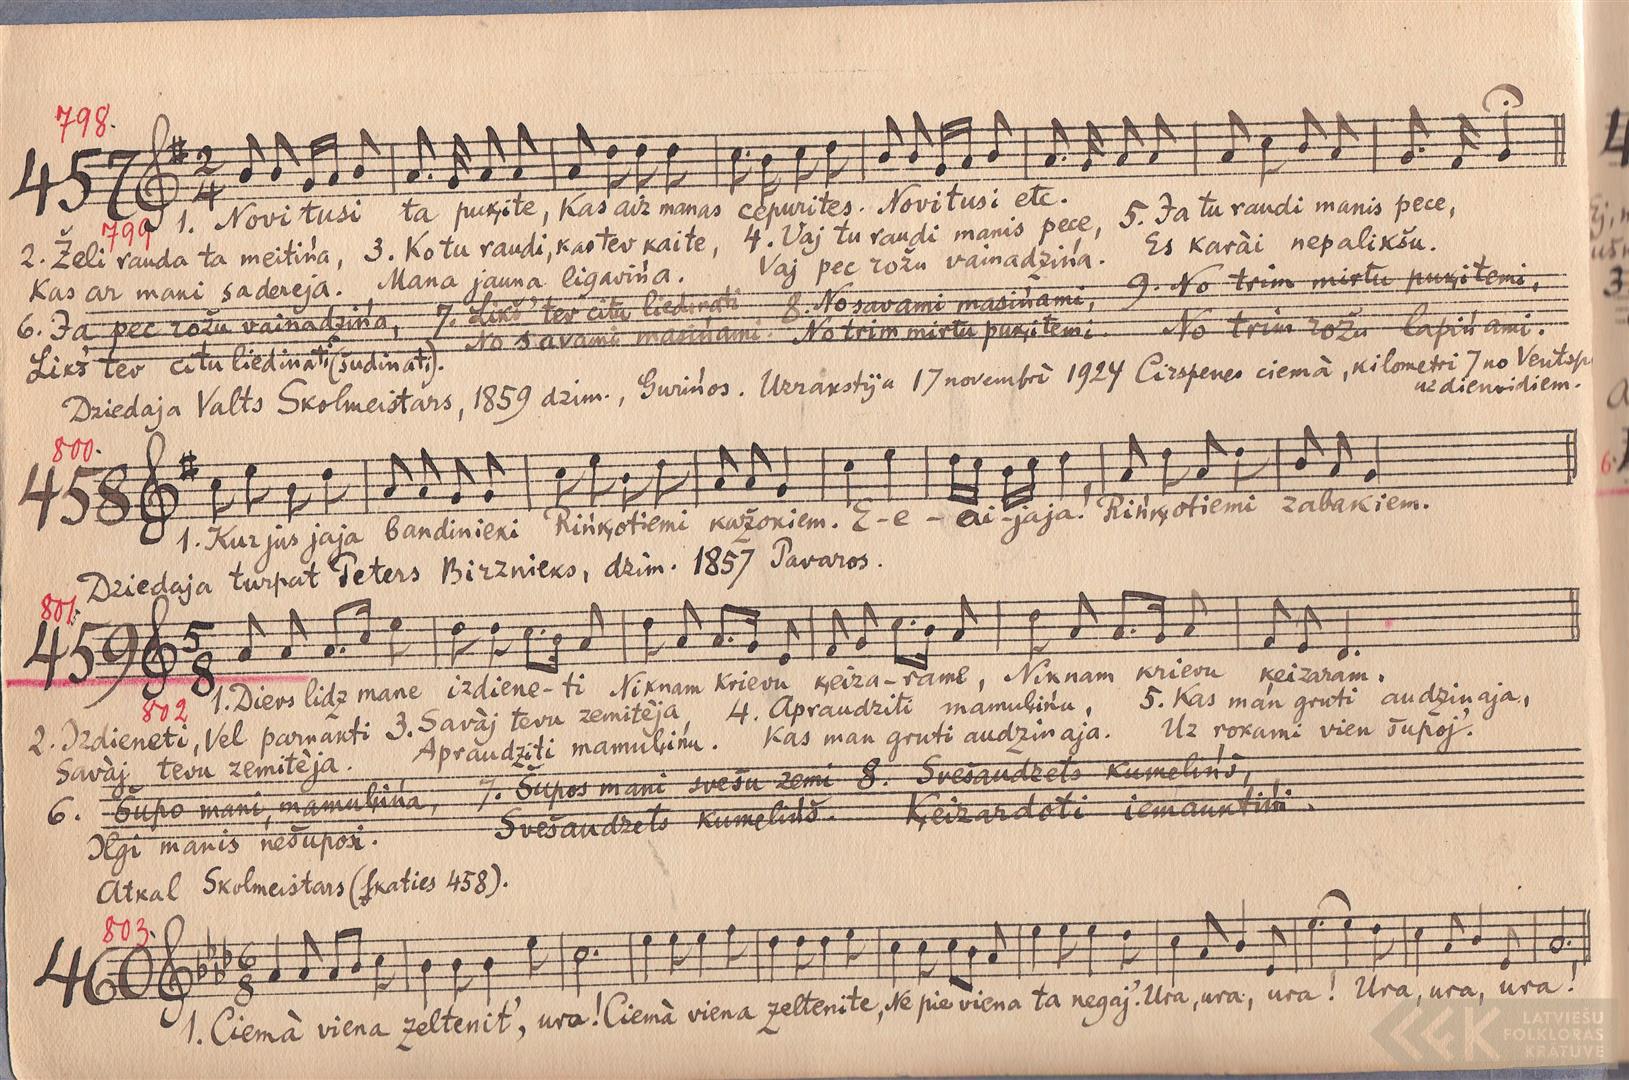 798.
457 2 4
1. Novitusi ta puķite, Kas aiz manas cepurites. Novitusi etc.
799
2. Želi rauda ta meitińa, 3. Ko tu raudi, kas tev kaite, 4. Vaj tu raudi manis pece, 5. Ja tu raudi manis pece,
Kas ar mani sadereja. Mana jauna ligavińa. Vaj pec rožu vainadzińa. Es karài nepalikšu.
6. Ja pec rožu vainadzińa, 7. Likš' tev citu liedinati 8. No savami masińami, 9. No trim mirtu puķitemi,
Likš' tev citu liedinati (šudinati). No savami masińami. No trim mirtu puķitemi. No trim rožu lapińami.
Dziedaja Valts Skolmeistars, 1859 dzim., Gurińos. Uzrakstija 17 novembrì 1924 Cirspenes ciemà, kilometri 7 no Ventsp
uz dienvidiem.
800.
458
1. Kur jus jaja bandinieki Rińķotiemi kažokiem. E-e-ai-jaja! Rińķotiemi zabakiem.
Dziedaja turpat Peters Birznieks, dzim. 1857 Pavaros.
801.
459 5 8
1. Dievs lidz mane izdiene-ti Niknam krievu ķeiza-rame, Niknam krievu ķeizaram.
802
2. Izdieneti, Vel parnakti 3. Savàj tevu zemitèja, 4. Apraudziti mamulińu, 5. Kas man gruti audzinaja,
Savàj tevu zemitèja. Apraudziti mamulińu. Kas man gruti audzinaja. Uz rokami vien šupoj'.
6. Šupo mani, mamulińa, 7. Šupos mani svešu zemi 8. Svešaudzets kumelińš,
Ilgi manis nešuposi. Svešaudzets kumelińš. Ķeizardoti iemauktińi.
Atkal Skolmeistars (skaties 458).
803.
460 6 8
1. Ciemà viena zeltenit', ura! Ciemà viena zeltenite, Ne pie viena ta negaj'. Ura, ura, ura! Ura, ura, ura!
LATVIEŠU
FOLKLORAS
KRĀTUVE